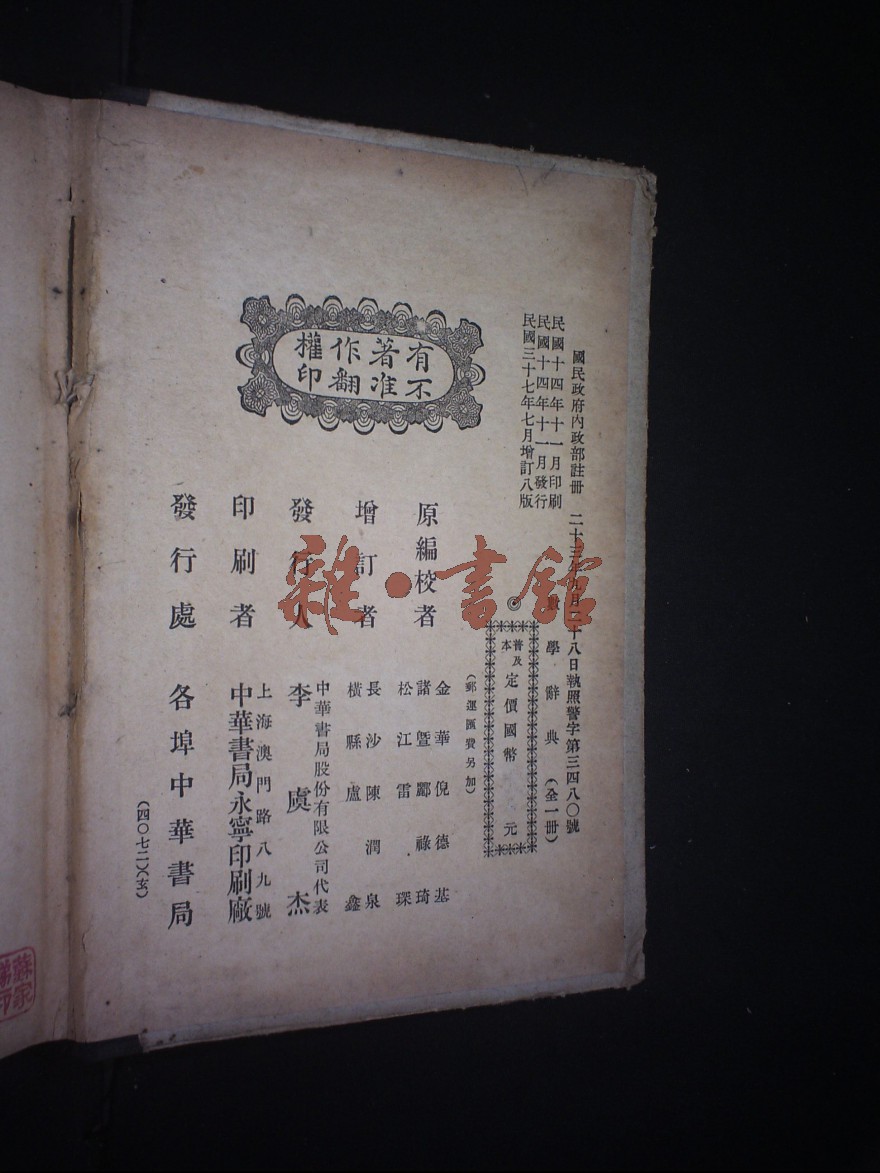 國民政府內政部註冊 二十三年九月二十八日執照警字第三四八〇號
民國十四年十一月印刷
民國十四年十一月發行
民國三十七年七月增訂八版
數學辭典（全一冊）
普及本 定價國幣 元
（郵運匯費另加）
有著作權
不准翻印
原編校者
金華倪德基
諸暨酈祿琦
松江雷琛
增訂者
長沙陳潤泉
橫縣盧鑫
發行人
中華書局股份有限公司代表
李虞杰
印刷者
上海澳門路八九號
中華書局永寧印刷廠
發行處 各埠中華書局
（四〇七二）（玄）
雜·書館